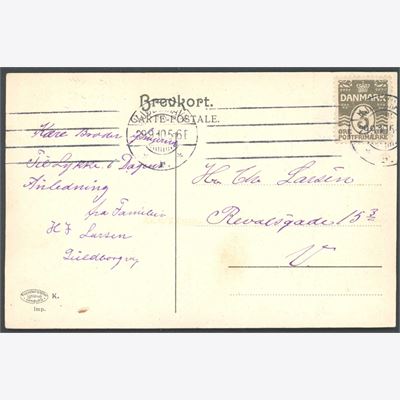 Brevkort.
CARTE-POSTALE.
29.9.10.5-6 E
DANMARK
3
ØRE
POSTFRIMÆRKE
29.9.10.5
Kære Broder
Til Lykke i Dagens
Anledning
fra Familien
H J Larsen
Guldborgvej
Hr. Chr Larsen
Revalsgade 15 3/
V
K.
Imp.